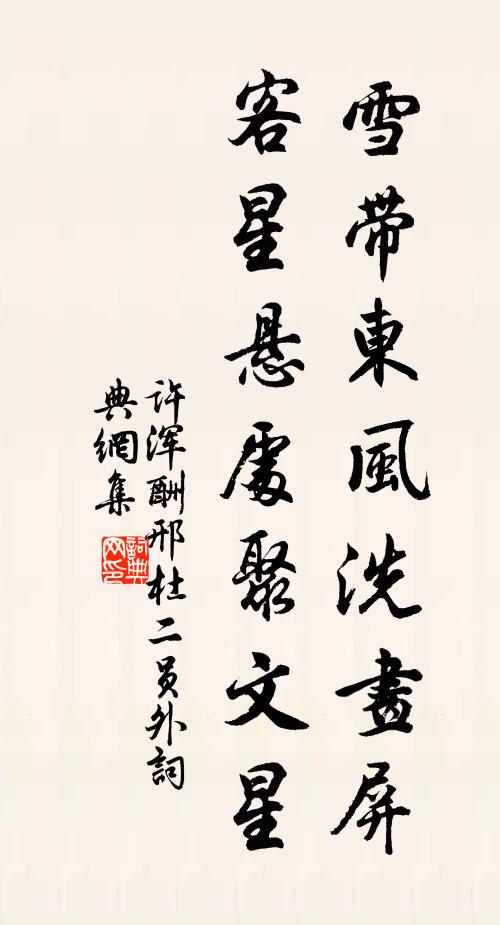 雪帶東風洗畫屏
客星悬處聚文星
许渾酬邢杜二员外詞
典網集
詞典
网印